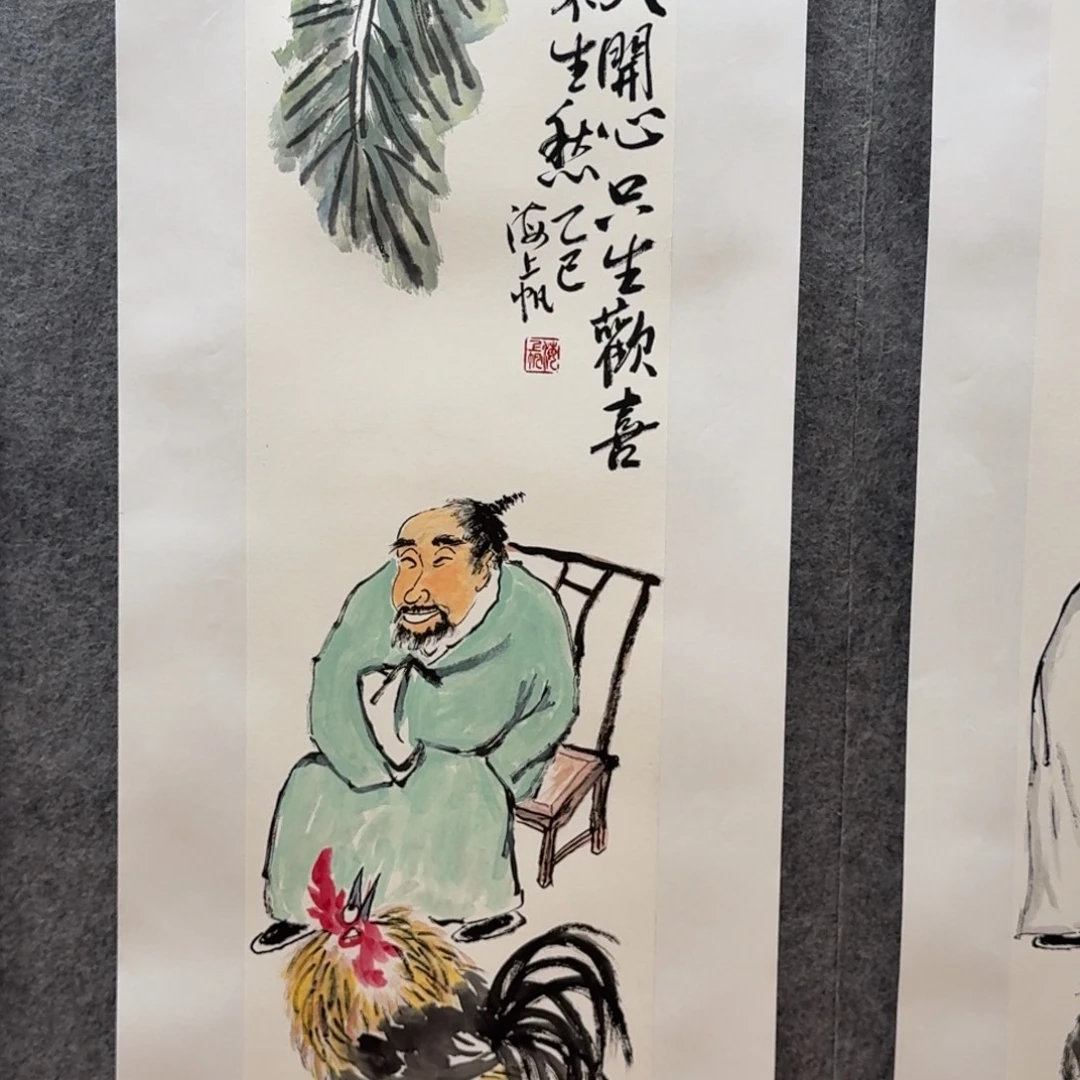 開心只生歡喜
生愁
乙巳
海上帆